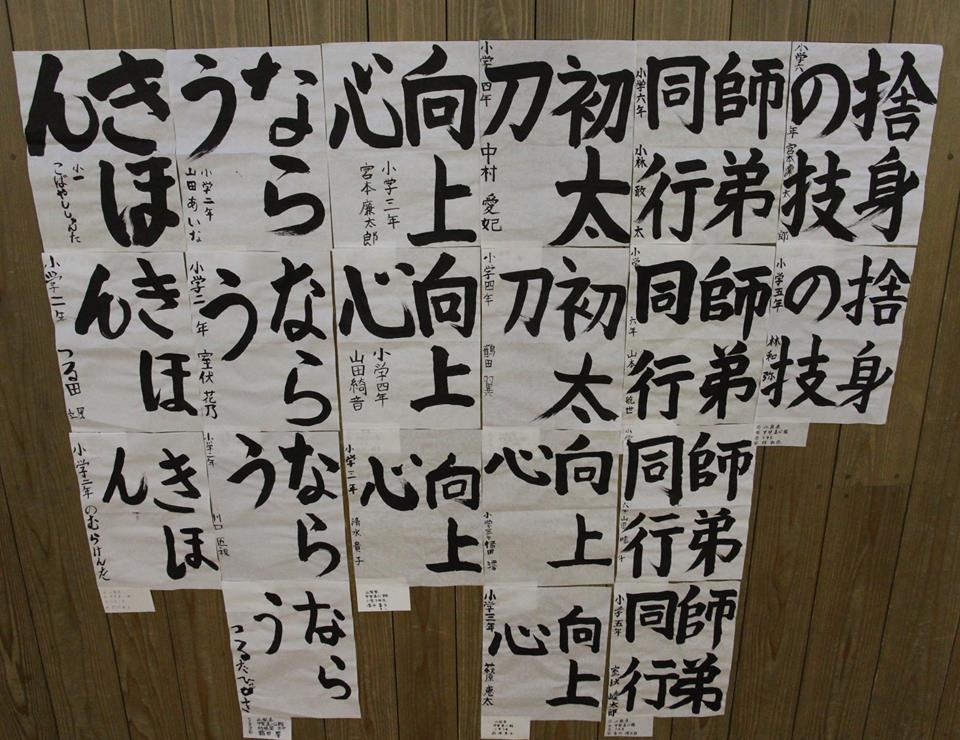 捨身
の技
小学六年 宮本廉太郎
師弟
同行
小学六年
小林敬太
初太
刀
小学四年
中村愛妃
向上
心
小学三年
宮本廉太郎
なら
う
小学二年
山田あいな
きほ
ん
小一
こばやししゅんた
捨身
の技
小学五年
林和弥
師弟
同行
小学六年
初太
刀
小学四年
鶴田翼
向上
心
小学四年
山田綺音
なら
う
小学二年
室伏花乃
きほ
ん
小学一年
つる田
師弟
同行
向上
心
向上
心
小学三年
清水貴子
なら
う
小学二年
きほ
ん
小学二年
のむらけんた
師弟
同行
小学五年
向上
心
小学三年
萩原恵太
なら
う
つるたひびき